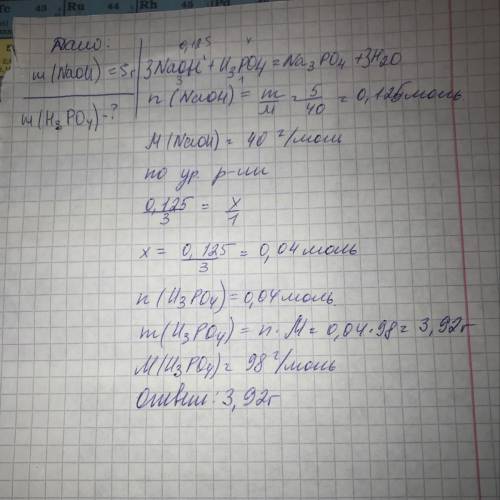 43 Ru 44 Rh 45 Pd
Дано:
m(NaOH) = 5г
m(H3PO4) - ?
0,125 x
3NaOH + H3PO4 = Na3PO4 + 3H2O
3 1
n(NaOH) = m/M = 5/40 = 0,125моль
M(NaOH) = 40 г/моль
по ур. р-ии
0,125/3 = x/1
x = 0,125/3 = 0,04 моль
n(H3PO4) = 0,04 моль
m(H3PO4) = n · M = 0,04 · 98 = 3,92г
M(H3PO4) = 98 г/моль
Ответ: 3,92г